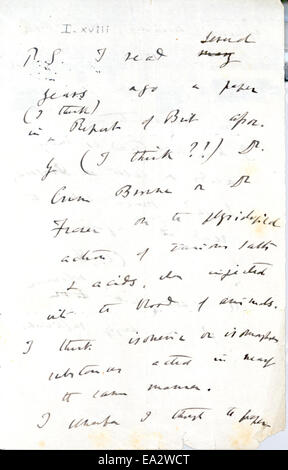 I. xviii
several
P.S. I read many
years ago a paper
(I think)
in Report of Brit Assoc.
by (I think ?!) Dr.
Crum Brown or Dr
Fraser on the physiological
action of various salts
& acids, when injected
into the blood of animals.
I think isomeric or isomorphous
substances acted in nearly
the same manner.
I
I thought the paper
alamy
Image ID: EA2WCT
www.alamy.com